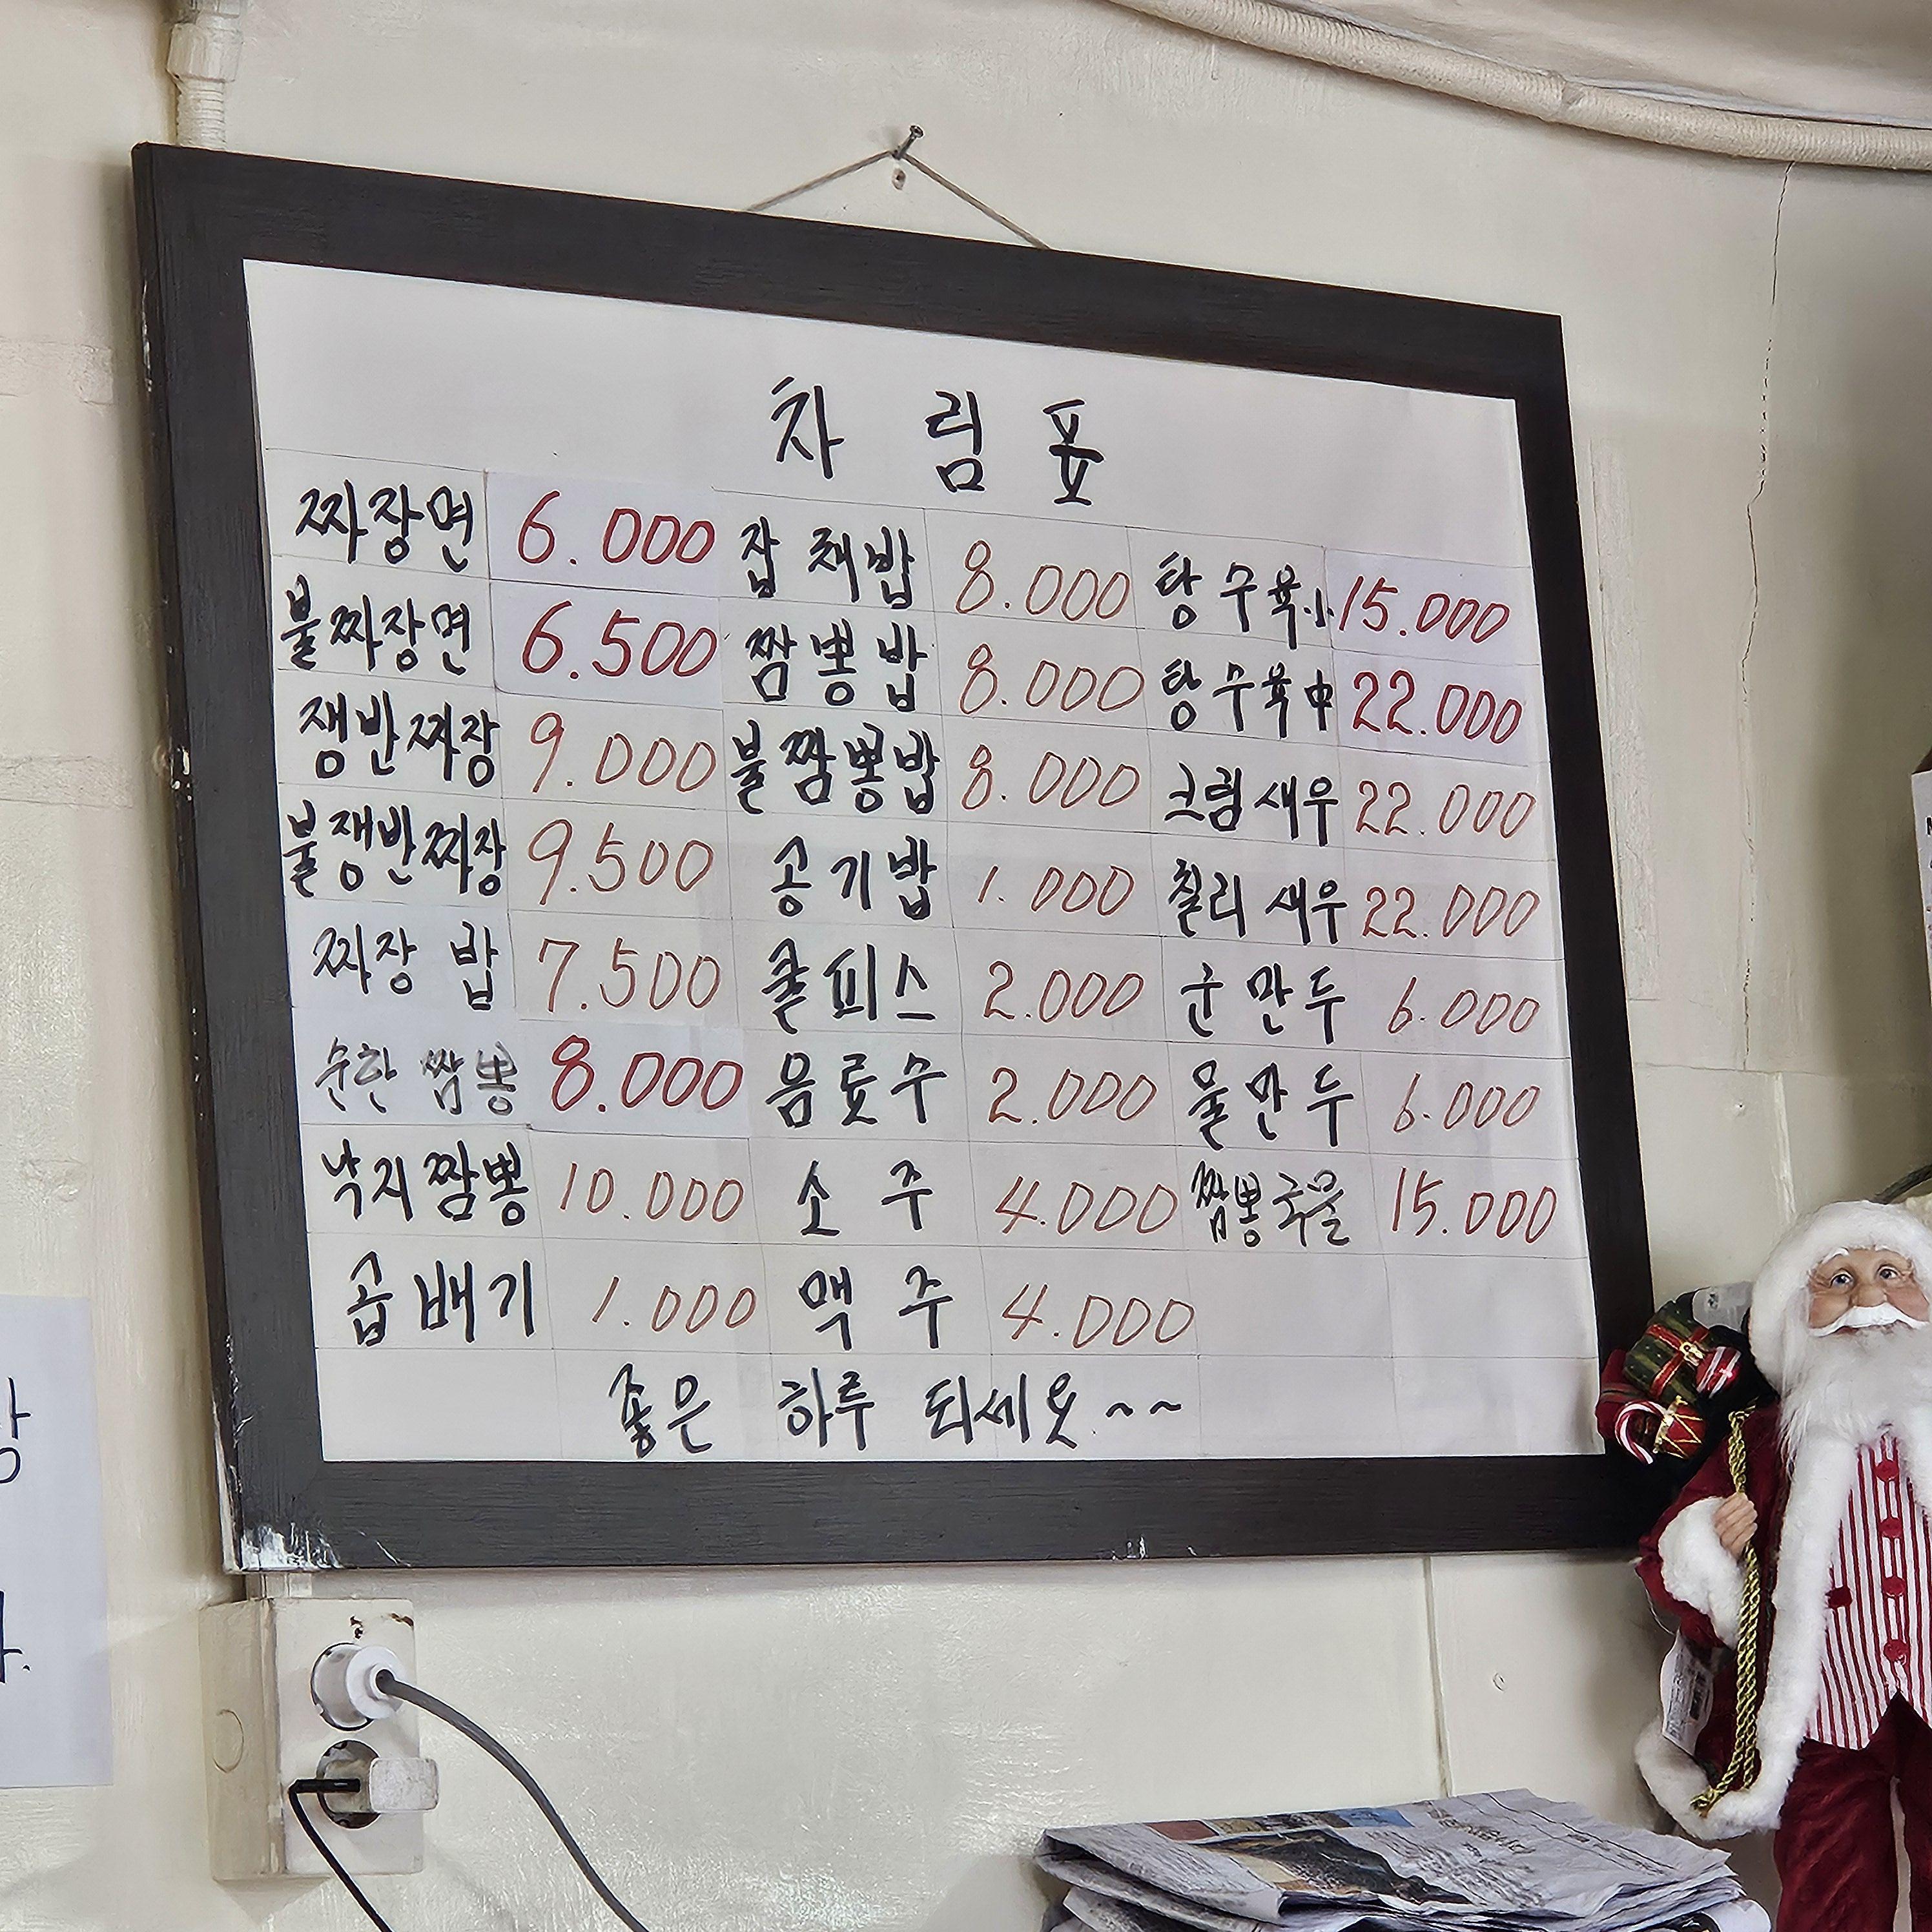 차림표
짜장면 6.000 잡채밥 8.000 탕수육小 15.000
불짜장면 6.500 짬뽕밥 8.000 탕수육中 22.000
쟁반짜장 9.000 불짬뽕밥 8.000 크림새우 22.000
불쟁반짜장 9.500 공기밥 1.000 칠리새우 22.000
짜장밥 7.500 쿨피스 2.000 군만두 6.000
순한짬뽕 8.000 음료수 2.000 물만두 6.000
낙지짬뽕 10.000 소주 4.000 짬뽕국물 15.000
곱배기 1.000 맥주 4.000
좋은 하루 되세요.~~